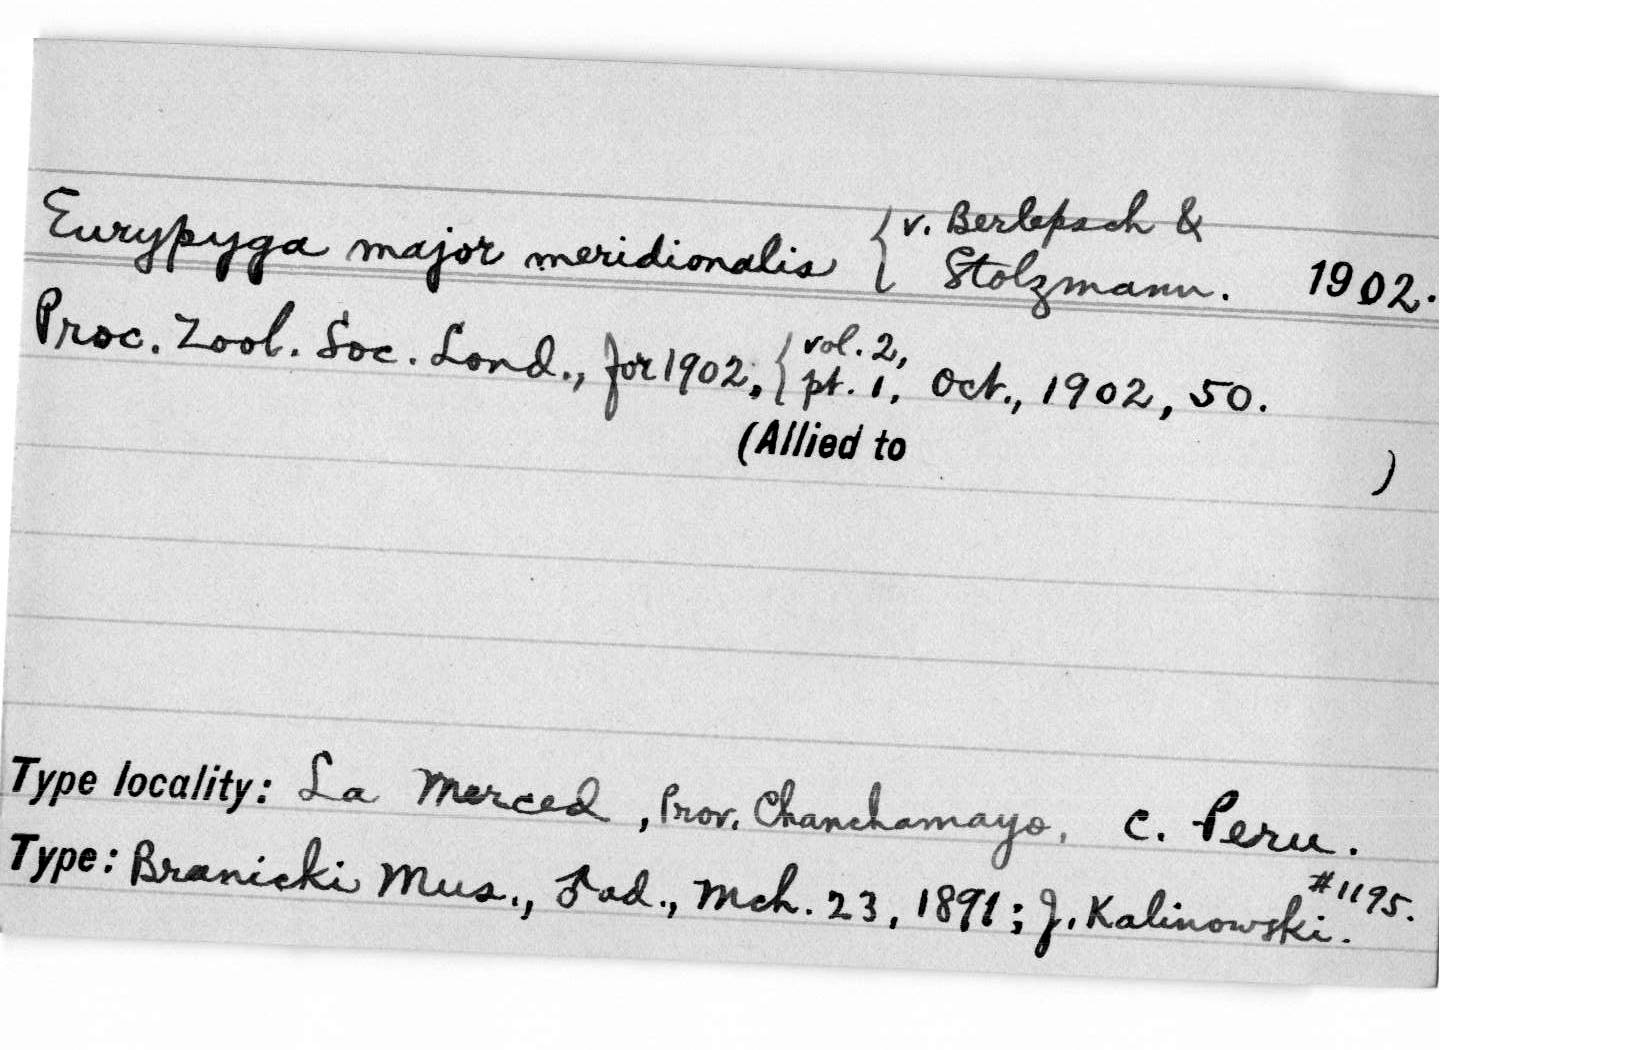 Eurypyga major meridionalis { v. Berlepsch &
Stolzmann. 1902.
Proc. Zool. Soc. Lond., for 1902, { vol. 2,
pt. 1, Oct., 1902, 50.
(Allied to )
Type locality: La Merced, Prov. Chanchamayo, C. Peru.
Type: Branicki Mus., ♂ ad., Mch. 23, 1891; J. Kalinowski. #1195.